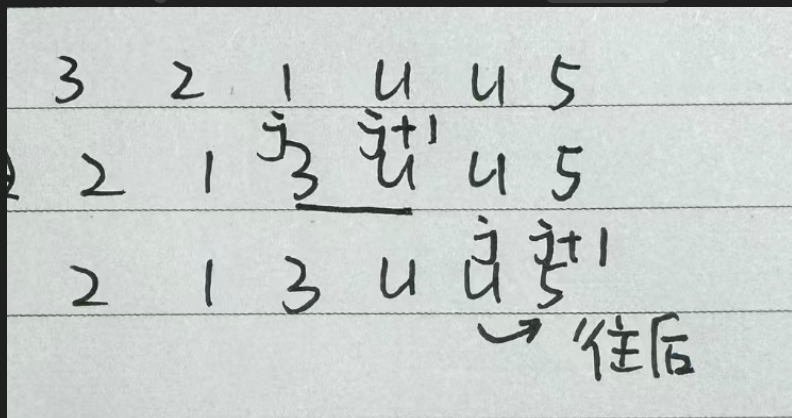 3 2 1 4 4 5
j j+1
2 1 3 4 4 5
j j+1
2 1 3 4 4 5
往后